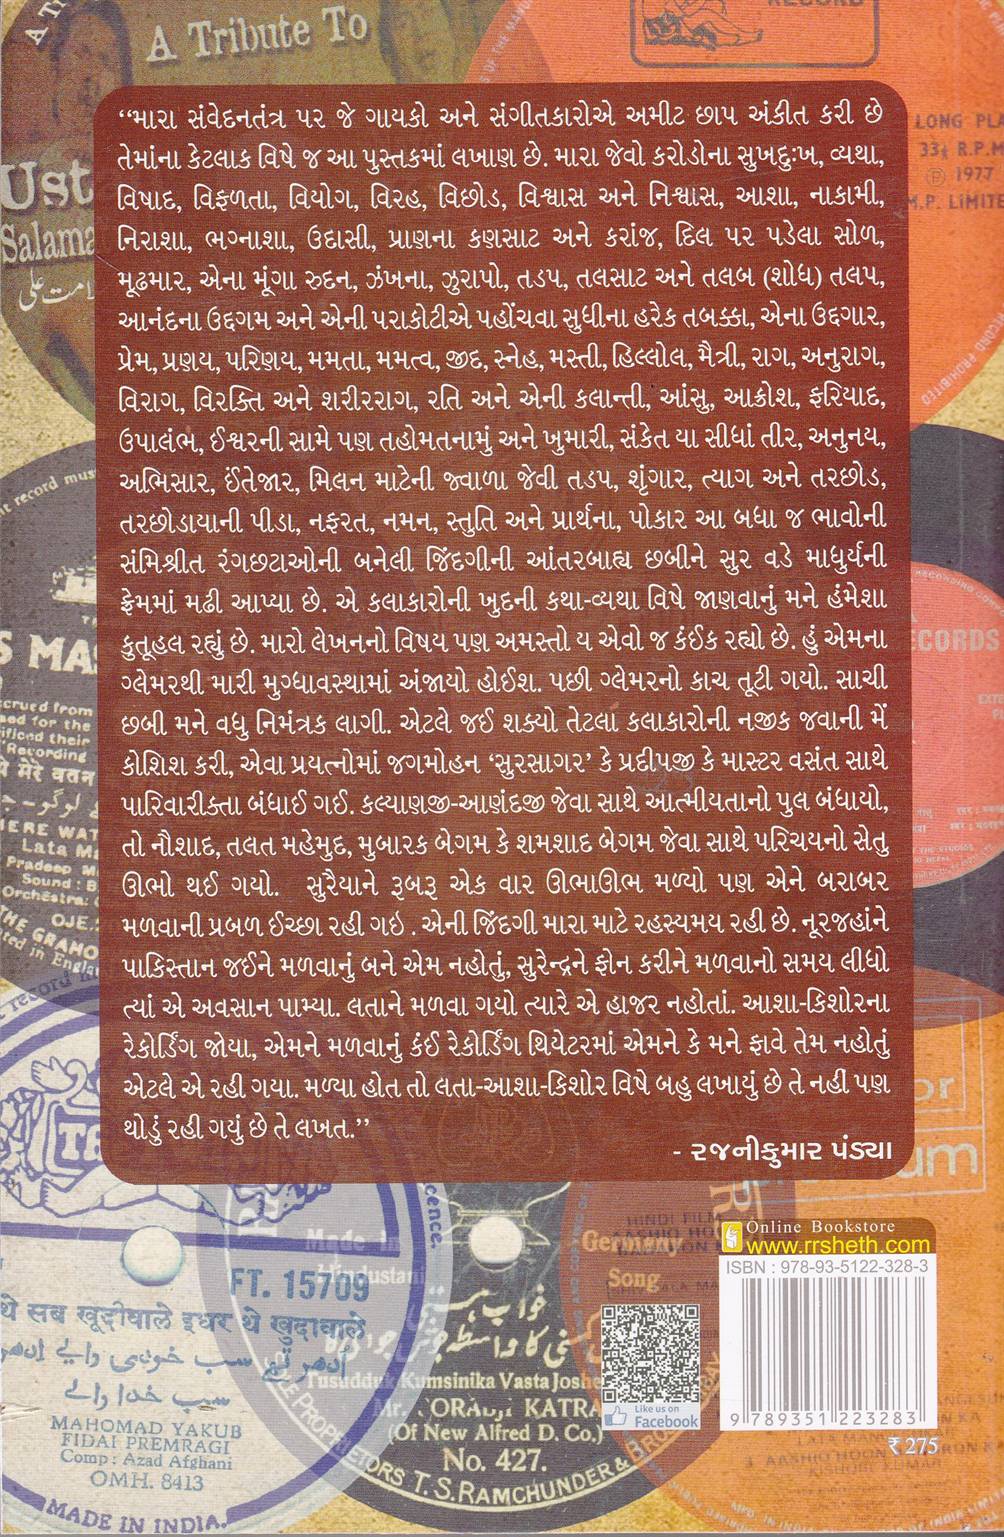 A Tribute To
RECORD
LONG PLA
33⅓ R.P.M
Ⓟ 1977
M.P. LIMITE
Ust
Salama
“મારા સંવેદનતંત્ર પર જે ગાયકો અને સંગીતકારોએ અમીટ છાપ અંકીત કરી છે
તેમાંના કેટલાક વિષે જ આ પુસ્તકમાં લખાણ છે. મારા જેવો કરોડોના સુખદુઃખ, વ્યથા,
વિષાદ, વિફળતા, વિયોગ, વિરહ, વિછોડ, વિશ્વાસ અને નિશ્વાસ, આશા, નાકામી,
નિરાશા, ભગ્નાશા, ઉદાસી, પ્રાણના કણસાટ અને કરાંજ, દિલ પર પડેલા સોળ,
મૂઢમાર, એના મૂંગા રુદન, ઝંખના, ઝુરાપો, તડપ, તલસાટ અને તલબ (શોધ) તલપ,
આનંદના ઉદ્દગમ અને એની પરાકોટીએ પહોંચવા સુધીના હરેક તબક્કા, એના ઉદ્દગાર,
પ્રેમ, પ્રણય, પરિણય, મમતા, મમત્વ, જીદ, સ્નેહ, મસ્તી, હિલ્લોલ, મૈત્રી, રાગ, અનુરાગ,
વિરાગ, વિરક્તિ અને શરીરરાગ, રતિ અને એની કલાન્તી, આંસુ, આક્રોશ, ફરિયાદ,
ઉપાલંભ, ઈશ્વરની સામે પણ તહોમતનામું અને ખુમારી, સંકેત યા સીધાં તીર, અનુનય,
અભિસાર, ઈંતેજાર, મિલન માટેની જ્વાળા જેવી તડપ, શૃંગાર, ત્યાગ અને તરછોડ,
તરછોડાયાની પીડા, નફરત, નમન, સ્તુતિ અને પ્રાર્થના, પોકાર આ બધા જ ભાવોની
સંમિશ્રીત રંગછટાઓની બનેલી જિંદગીની આંતરબાહ્ય છબીને સુર વડે માધુર્યની
ફ્રેમમાં મઢી આપ્યા છે. એ કલાકારોની ખુદની કથા-વ્યથા વિષે જાણવાનું મને હંમેશા
કુતૂહલ રહ્યું છે. મારો લેખનનો વિષય પણ અમસ્તો ય એવો જ કંઈક રહ્યો છે. હું એમના
ગ્લેમરથી મારી મુગ્ધાવસ્થામાં અંજાયો હોઈશ. પછી ગ્લેમરનો કાચ તૂટી ગયો. સાચી
છબી મને વધુ નિમંત્રક લાગી. એટલે જઈ શક્યો તેટલા કલાકારોની નજીક જવાની મેં
કોશિશ કરી, એવા પ્રયત્નોમાં જગમોહન ‘સુરસાગર’ કે પ્રદીપજી કે માસ્ટર વસંત સાથે
પારિવારીક્તા બંધાઈ ગઈ. કલ્યાણજી-આણંદજી જેવા સાથે આત્મીયતાનો પુલ બંધાયો,
તો નૌશાદ, તલત મહેમુદ, મુબારક બેગમ કે શમશાદ બેગમ જેવા સાથે પરિચયનો સેતુ
ઊભો થઈ ગયો. સુરૈયાને રૂબરૂ એક વાર ઊભાઊભ મળ્યો પણ એને બરાબર
મળવાની પ્રબળ ઈચ્છા રહી ગઇ . એની જિંદગી મારા માટે રહસ્યમય રહી છે. નૂરજહાંને
પાકિસ્તાન જઈને મળવાનું બને એમ નહોતું, સુરેન્દ્રને ફોન કરીને મળવાનો સમય લીધો
ત્યાં એ અવસાન પામ્યા. લતાને મળવા ગયો ત્યારે એ હાજર નહોતાં. આશા-કિશોરના
રેકોર્ડિંગ જોયા, એમને મળવાનું કંઈ રેકોર્ડિંગ થિયેટરમાં એમને કે મને ફાવે તેમ નહોતું
એટલે એ રહી ગયા. મળ્યા હોત તો લતા-આશા-કિશોર વિષે બહુ લખાયું છે તે નહીં પણ
થોડું રહી ગયું છે તે લખત.”
- રજનીકુમાર પંડ્યા
Online Bookstore
www.rrsheth.com
ISBN : 978-93-5122-328-3
9 789351 223283
₹ 275
Like us on
Facebook
Made In
Hindustani
Germany
Song
FT. 15709
थे सब खूदीवाले इधर थे खुदावाले
MAHOMAD YAKUB
FIDAI PREMRAGI
Comp : Azad Afghani
OMH. 8413
MADE IN INDIA.
Tusudduk Kumsinika Vasta Joshe
KATRA
(Of New Alfred D. Co.)
No. 427.
T.S.RAMCHUNDER &